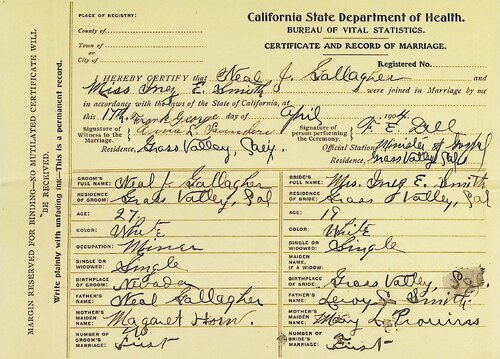 California State Department of Health.
PLACE OF REGISTRY:
BUREAU OF VITAL STATISTICS.
County of
Town of
or
CERTIFICATE AND RECORD OF MARRIAGE.
City of
Registered No.
I HEREBY CERTIFY that Neal J. Gallagher and
Miss Inez E. Smith were joined in Marriage by me
in accordance with the laws of the State of California, at
this 17th day of April 1904
Frank George
Signature of Witness to the Marriage. Saunders
Signature of person performing the Ceremony. F. E. Dell
Residence, Grass Valley,
Official Station, Minister of Gospel
Grass Valley Cal
GROOM'S FULL NAME: Neal J. Gallagher
BRIDE'S FULL NAME: Mis. Inez E. Smith
RESIDENCE OF GROOM: Grass Valley, Cal
RESIDENCE OF BRIDE: Grass Valley, Cal
AGE: 27
AGE: 19
COLOR: White
COLOR: White
OCCUPATION: Miner
SINGLE OR WIDOWED: Single
SINGLE OR WIDOWED: Single
MAIDEN NAME, IF A WIDOW:
BIRTHPLACE OF GROOM: Nevada
BIRTHPLACE OF BRIDE: Grass Valley, Cal.
FATHER'S NAME: Neal Gallagher
FATHER'S NAME: Leroy S. Smith
MOTHER'S MAIDEN NAME: Margaret Horn.
MOTHER'S MAIDEN NAME: Mary L.
NUMBER OF GROOM'S MARRIAGE: First
NUMBER OF BRIDE'S MARRIAGE: First
MARGIN RESERVED FOR BINDING—NO MUTILATED CERTIFICATE WILL
BE RECEIVED.
Write plainly with unfading ink—This is a permanent record.